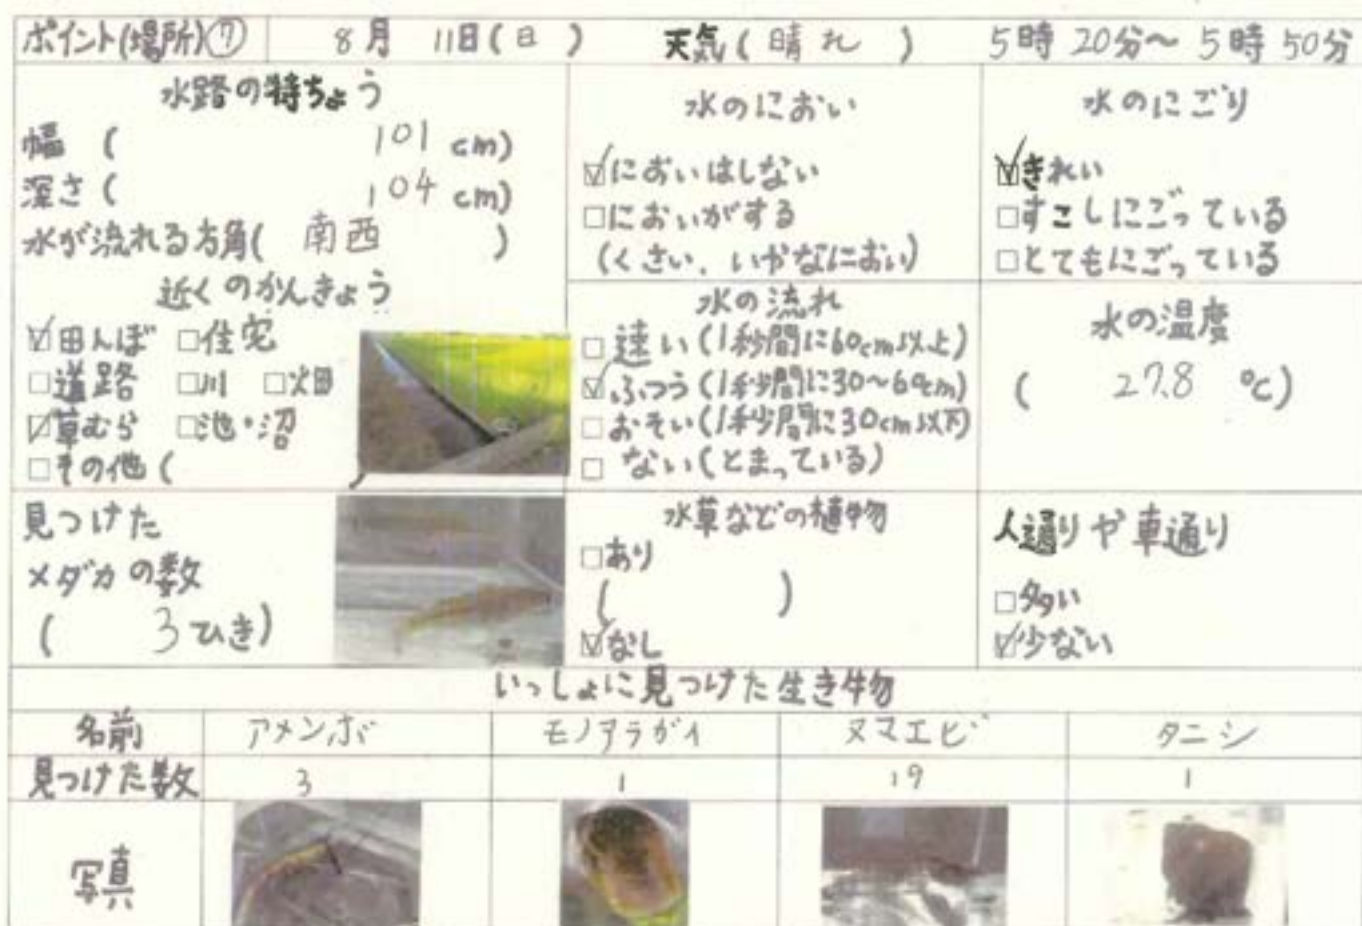 ポイント(場所)⑦ 8月 11日(日) 天気(晴れ) 5時20分～5時50分
水路の特ちょう
幅( 101 cm)
深さ( 104 cm)
水が流れる方角( 南西 )
近くのかんきょう
☑田んぼ □住宅
□道路 □川 □畑
☑草むら □池・沼
□その他(
水のにおい
☑においはしない
□においがする
(くさい、いかなにおい)
水のにごり
☑きれい
□すこしにごっている
□とてもにごっている
水の流れ
□速い(1秒間に60cm以上)
☑ふつう(1秒間に30～60cm)
□おそい(1秒間に30cm以下)
□ない(とまっている)
水の温度
( 27.8 ℃)
見つけた
メダカの数
( 3ひき)
水草などの植物
□あり
( )
☑なし
人通りや車通り
□多い
☑少ない
いっしょに見つけた生き物
名前 アメンボ モノアラガイ ヌマエビ タニシ
見つけた数 3 1 19 1
写真